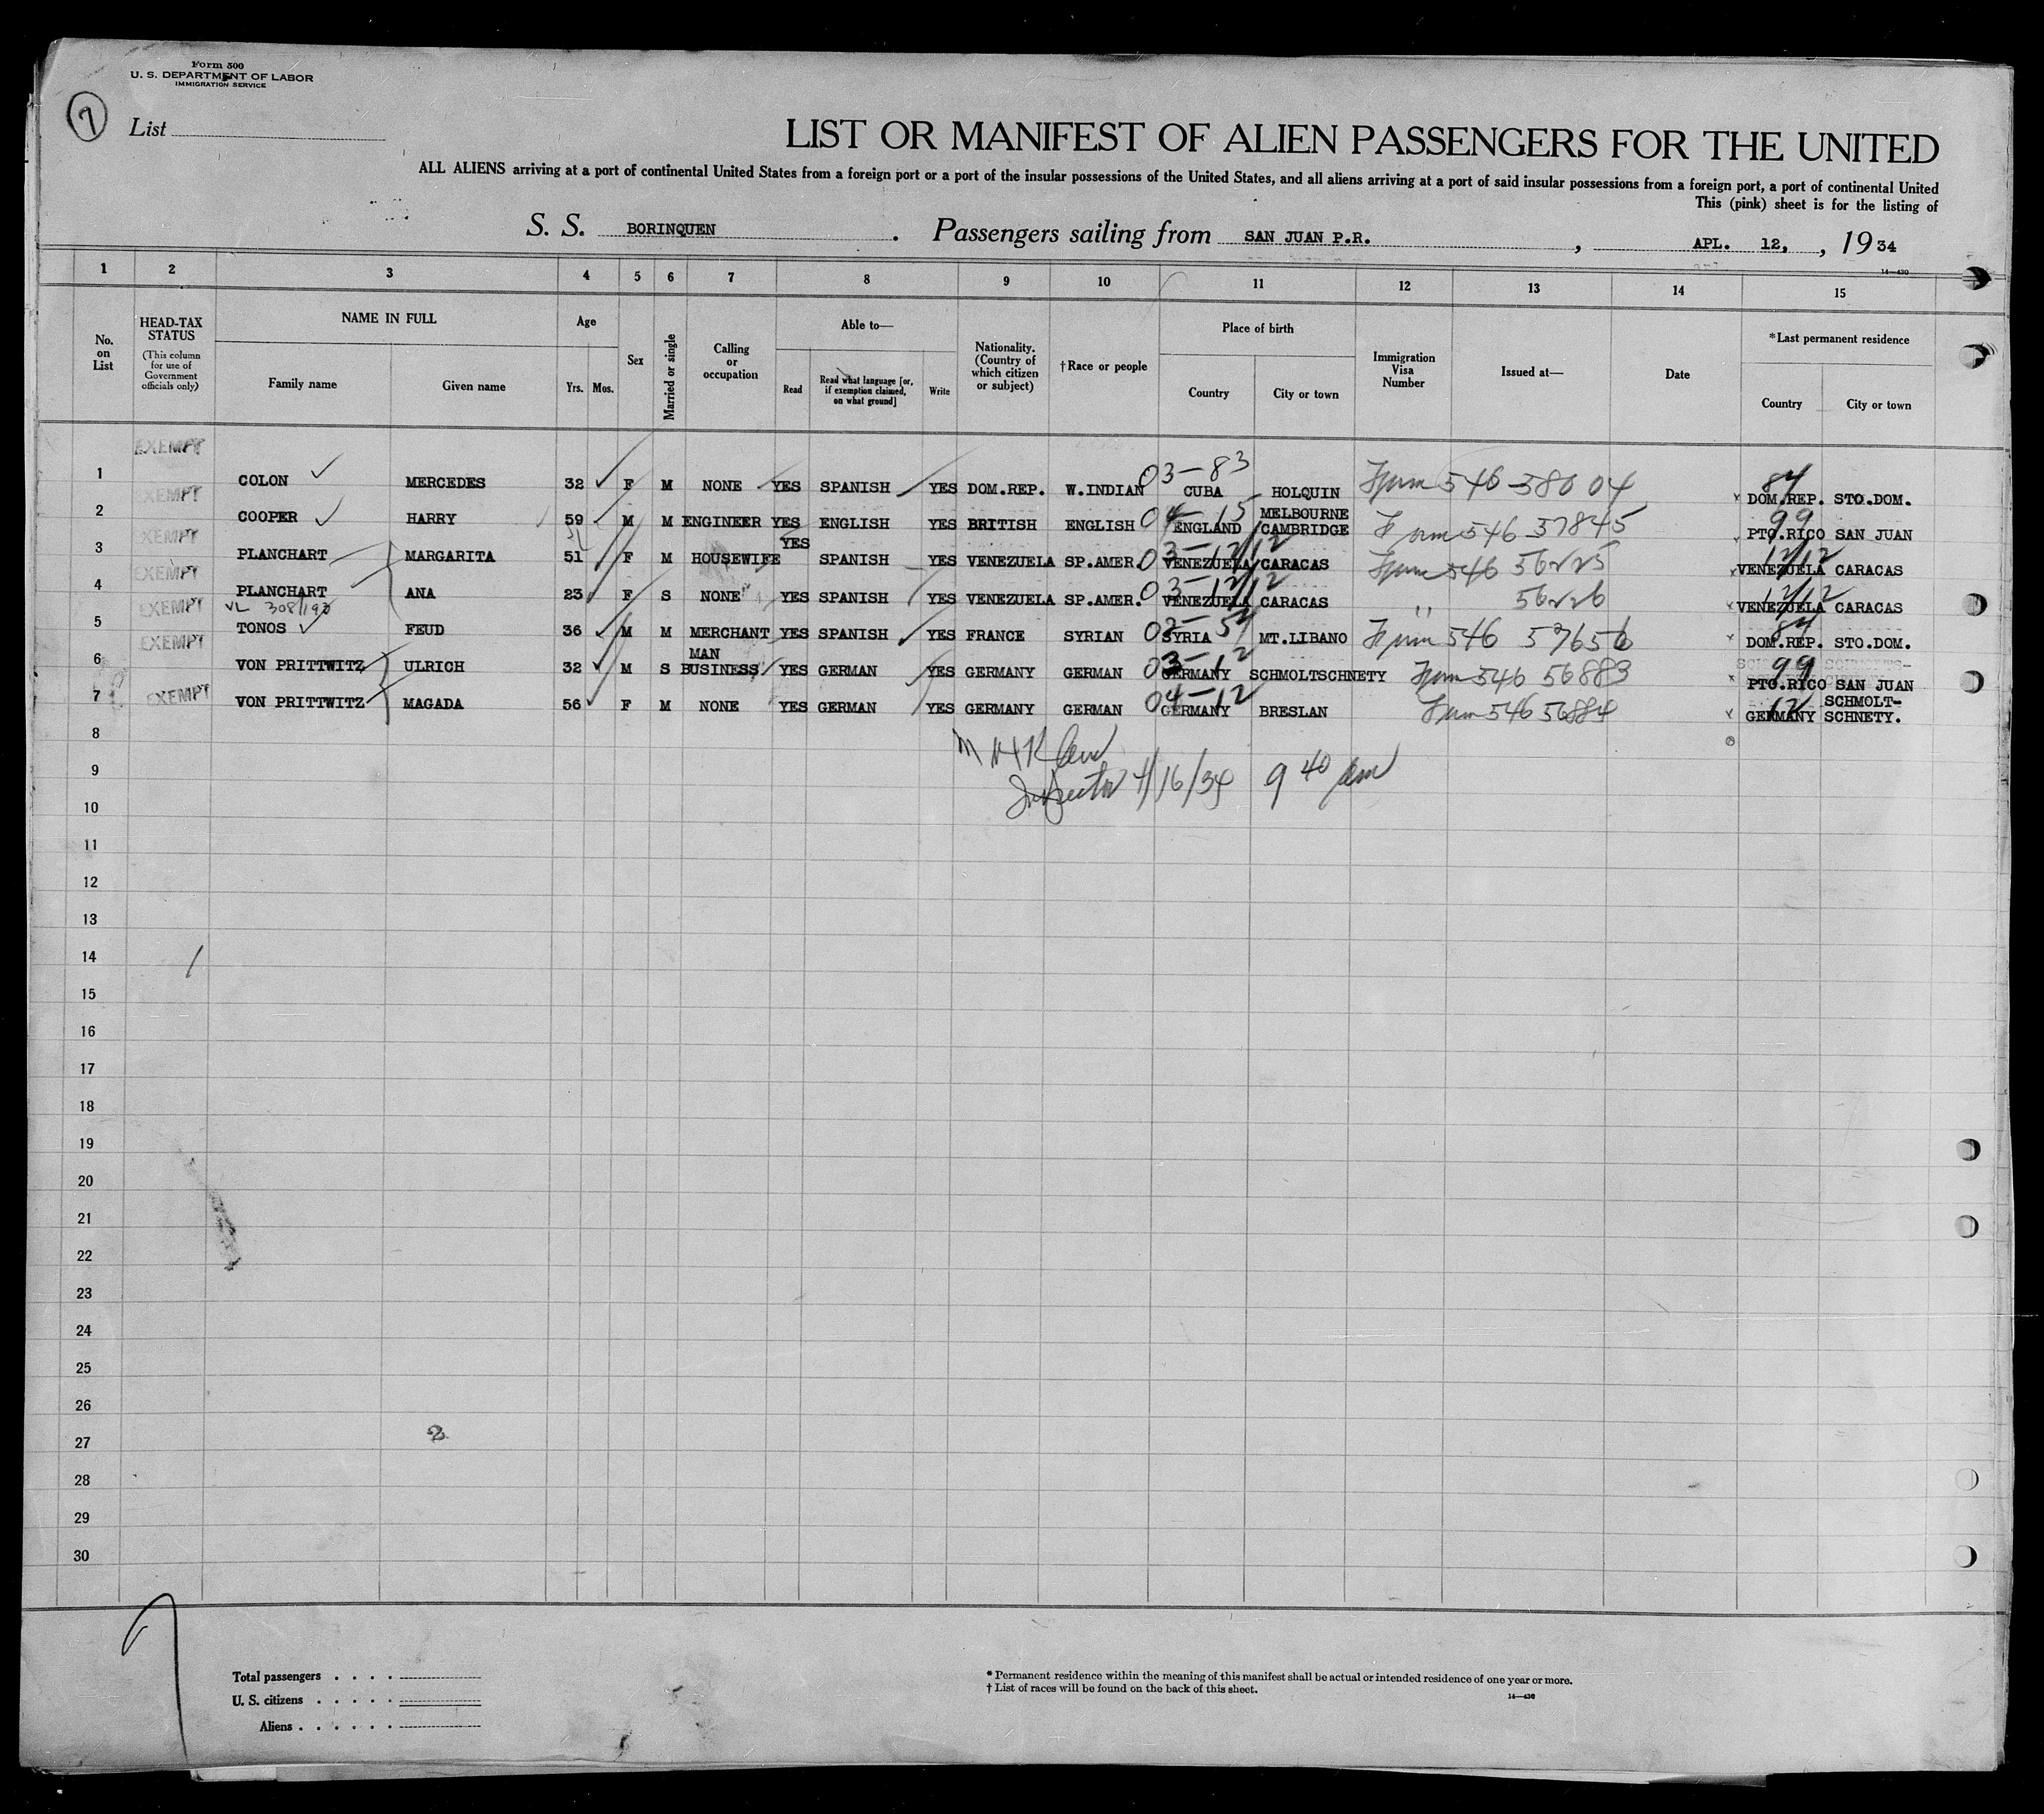 Form 500
U. S. DEPARTMENT OF LABOR
IMMIGRATION SERVICE
7
List
LIST OR MANIFEST OF ALIEN PASSENGERS FOR THE UNITED
ALL ALIENS arriving at a port of continental United States from a foreign port or a port of the insular possessions of the United States, and all aliens arriving at a port of said insular possessions from a foreign port, a port of continental United
This (pink) sheet is for the listing of
S. S. BORINQUEN. Passengers sailing from SAN JUAN P.R., APL. 12, , 19 34
14—430
1 2 3 4 5 6 7 8 9 10 11 12 13 14 15
No. on List
HEAD-TAX STATUS (This column for use of Government officials only)
NAME IN FULL
Family name Given name
Age
Yrs. Mos.
Sex
Married or single
Calling or occupation
Able to—
Read
Read what language [or, if exemption claimed, on what ground]
Write
Nationality. (Country of which citizen or subject)
†Race or people
Place of birth
Country City or town
Immigration Visa Number
Issued at—
Date
*Last permanent residence
Country City or town
EXEMPT
03-83 84
1 COLON MERCEDES 32 F M NONE YES SPANISH YES DOM.REP. W.INDIAN CUBA HOLQUIN Form 546 38004 DOM.REP. STO.DOM.
EXEMPT
04-15 MELBOURNE 99
2 COOPER HARRY 59 M M ENGINEER YES ENGLISH YES BRITISH ENGLISH ENGLAND CAMBRIDGE Form 546 37845 PTO.RICO SAN JUAN
EXEMPT
YES 03-12/12 12/12
3 PLANCHART MARGARITA 51 F M HOUSEWIFE SPANISH YES VENEZUELA SP.AMER. VENEZUELA CARACAS Form 546 56225 VENEZUELA CARACAS
EXEMPT
03-12/12 12/12
4 PLANCHART ANA 23 F S NONE YES SPANISH YES VENEZUELA SP.AMER. VENEZUELA CARACAS " 56226 VENEZUELA CARACAS
EXEMPT
VL 308/190 84
5 TONOS FEUD 36 M M MERCHANT YES SPANISH YES FRANCE SYRIAN SYRIA MT.LIBANO Form 546 57656 DOM.REP. STO.DOM.
EXEMPT
MAN 03-12 99
6 VON PRITTWITZ ULRICH 32 M S BUSINESS YES GERMAN YES GERMANY GERMAN GERMANY SCHMOLTSCHNETY Form 546 56883 PTO.RICO SAN JUAN
EXEMPT
04-12 12 SCHMOLT-
7 VON PRITTWITZ MAGADA 56 F M NONE YES GERMAN YES GERMANY GERMAN GERMANY BRESLAN Form 546 56884 GERMANY SCHNETY.
8
9 Inspector 4/16/34 9 40 am
10
11
12
13
14
15
16
17
18
19
20
21
22
23
24
25
26
27
28
29
30
Total passengers . . . .
U. S. citizens . . . . .
Aliens . . . . . .
* Permanent residence within the meaning of this manifest shall be actual or intended residence of one year or more.
† List of races will be found on the back of this sheet.
14—430